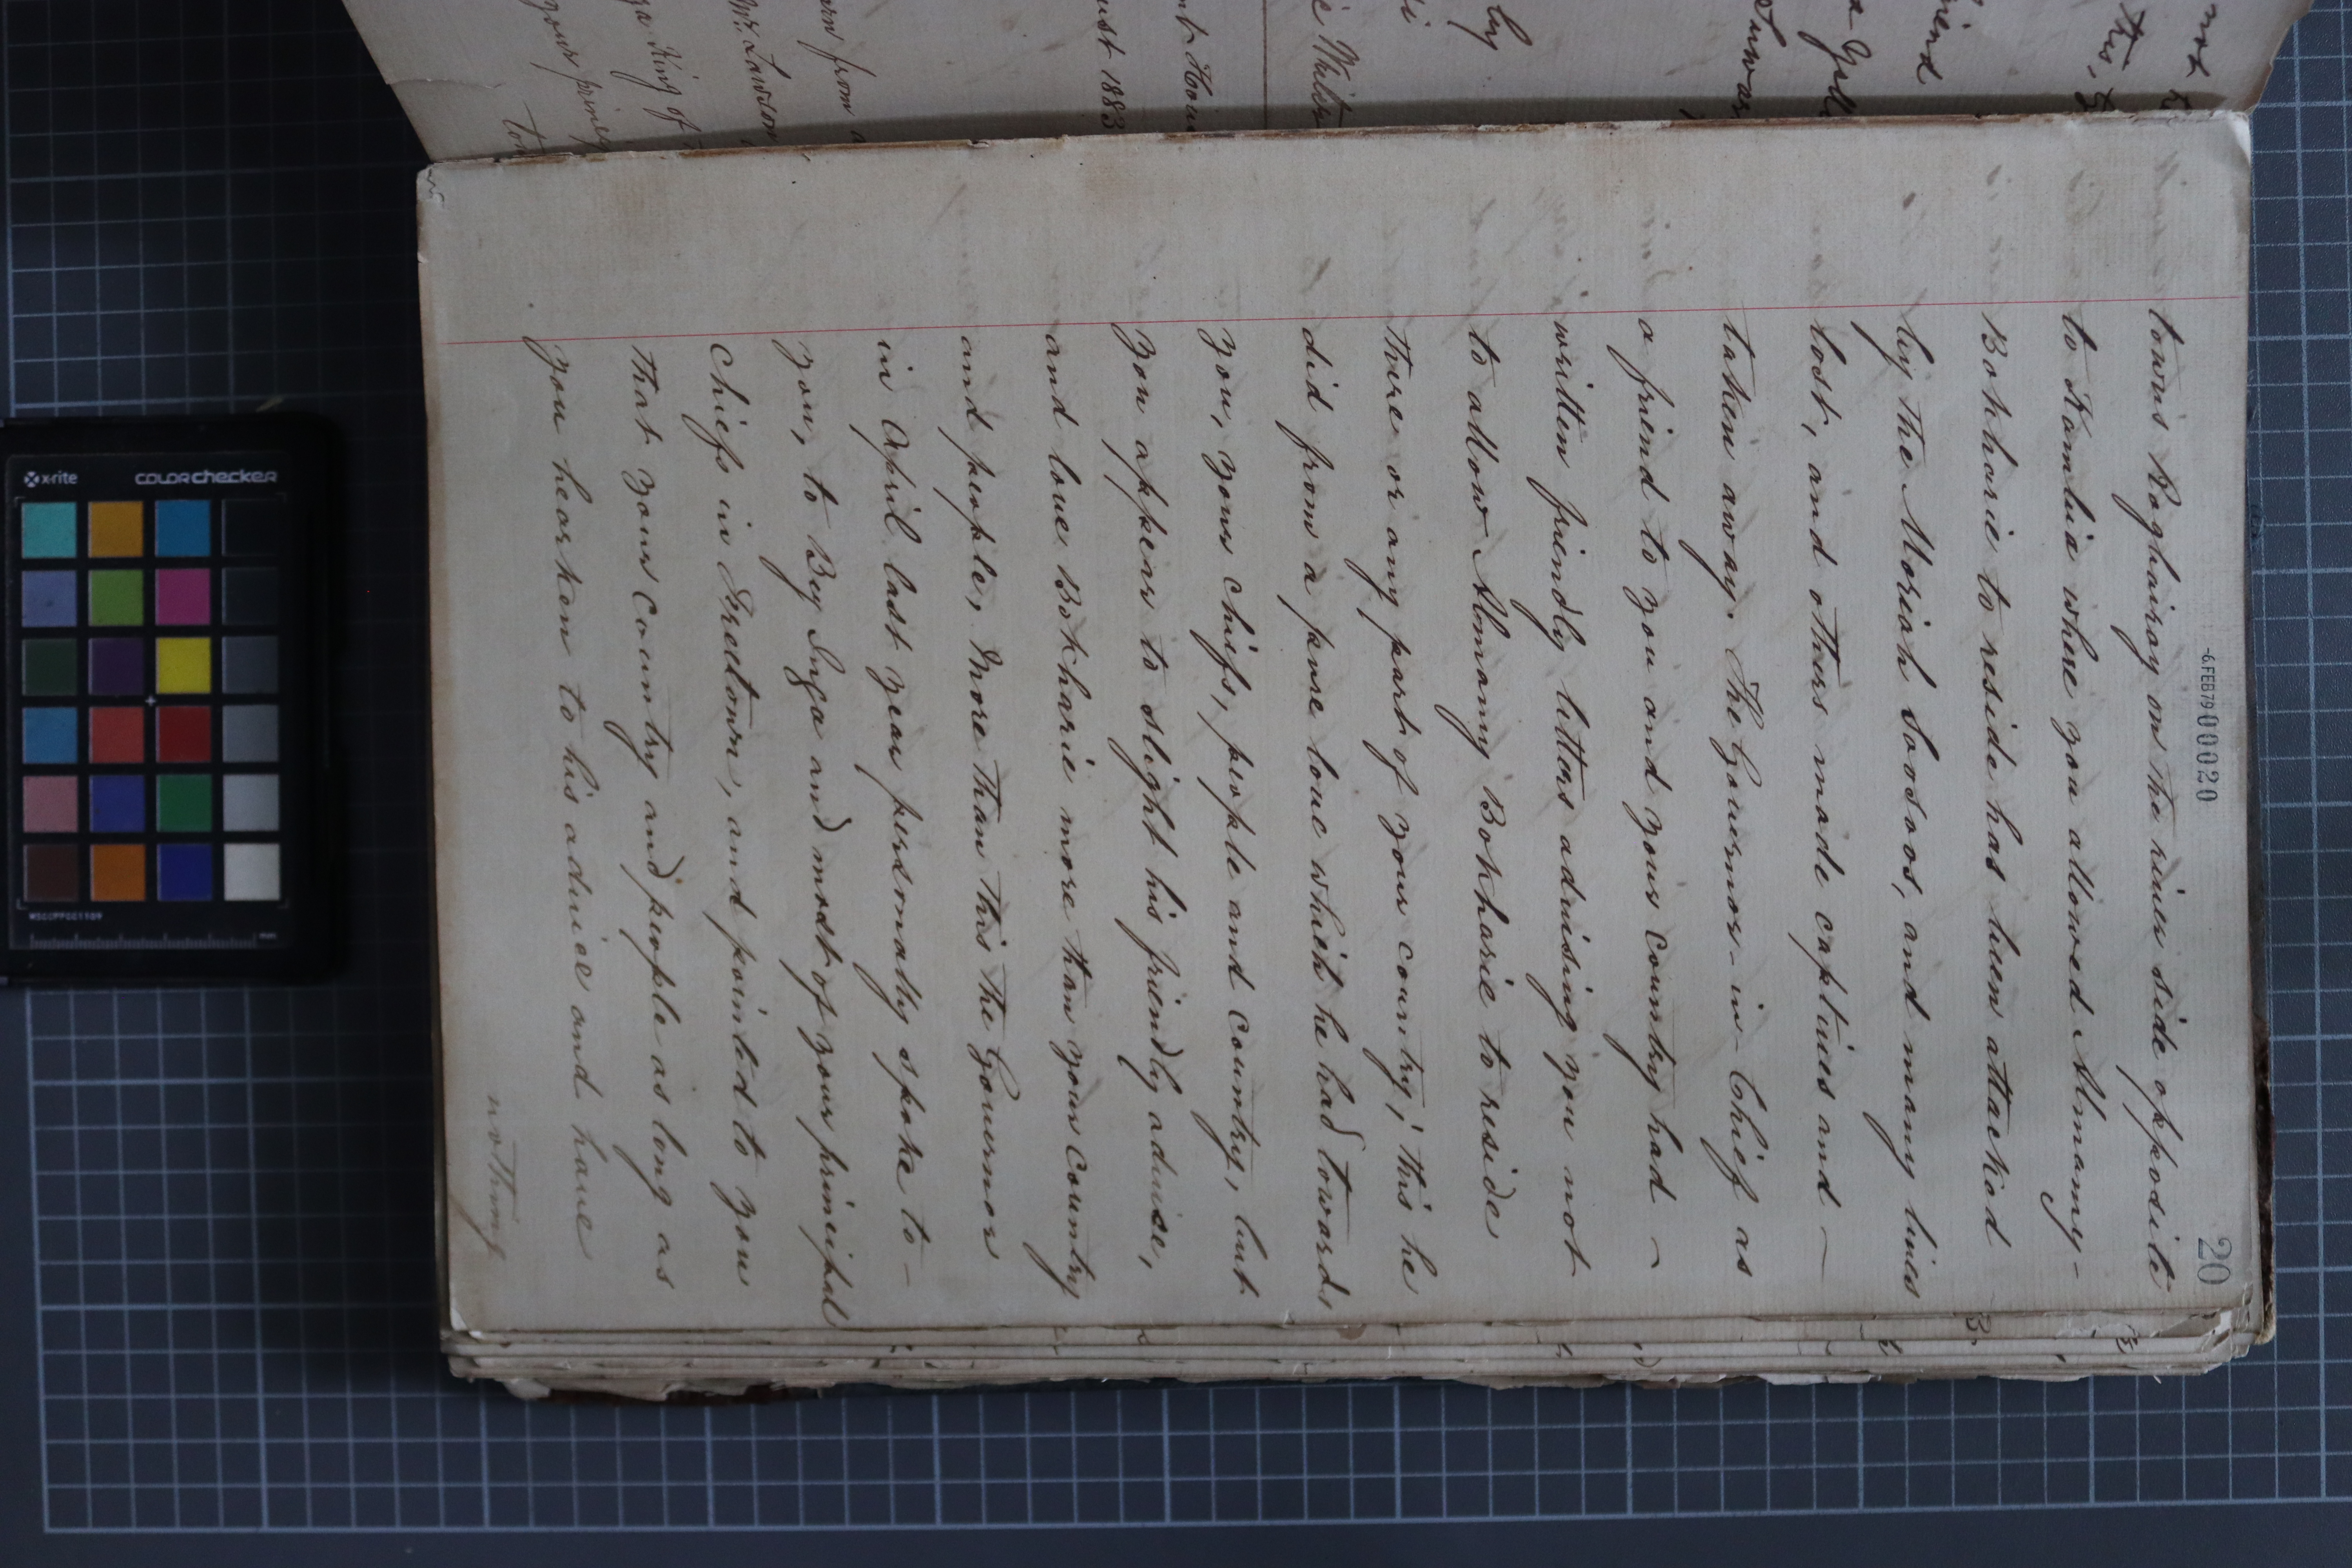 -6 FEB 79 00020
20
towns Roghairay on the river side opposite
to Kambia where you allowed Almamy-
Bokharie to reside has been attacked
by the Moriah Soosoos, and many lives
lost, and others made captives and —
taken away. The Governor-in-Chief as
a friend to you and your Country had —
written friendly letters advising you not
to allow Almamy Bokharie to reside
there or any part of your country; this he
did from a pure love which he had towards
you, your chiefs, people and Country, but
you appear to slight his friendly advise,
and love Bokharie more than your Country
and people, More than this the Governor
in April last year personally spoke to —
you, to Bey Inga and most of your principal
Chiefs in Freetown, and pointed to you
that your Country and people as long as
you hearken to his advice and have
nothing
x-rite colorchecker
MSCCPPCC1109
mm
ust 1883
Mr. Lawson
King of
your princip
from
by